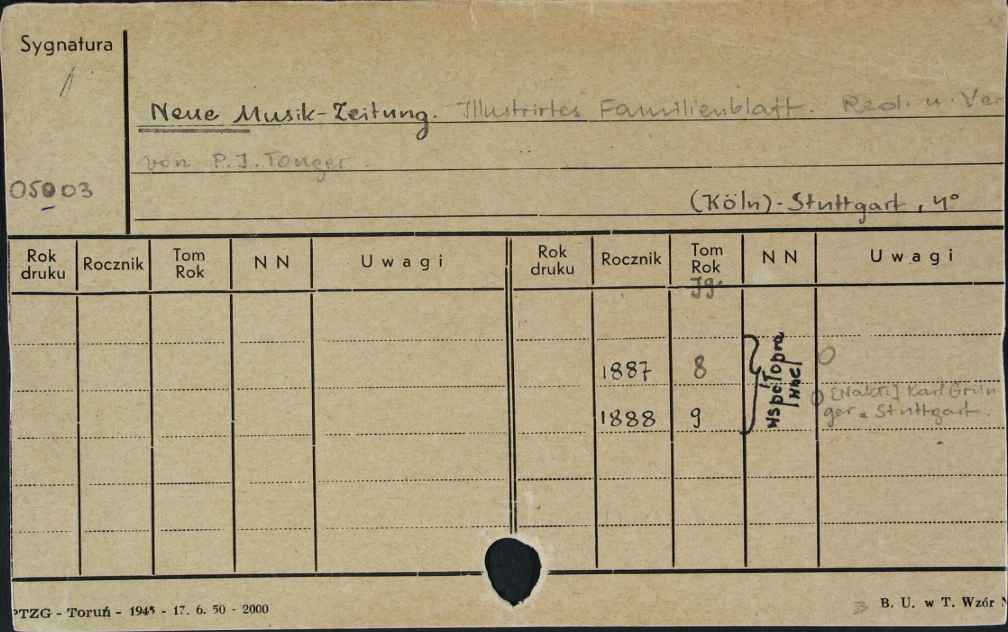 Sygnatura
Neue Musik-Zeitung. Illustrirtes Familienblatt. Red. u. Ver
von P.J. Tonger.
05903
(Köln)-Stuttgart, 4°
Rok druku Rocznik Tom Rok NN Uwagi Rok druku Rocznik Tom Rok NN Uwagi
Jg.
1887 8
współopra
1888 9 [Nakł.] Karl Grün
ger. Stuttgart
PTZG - Toruń - 1945 - 17. 6. 50 - 2000
B. U. w T. Wzór N